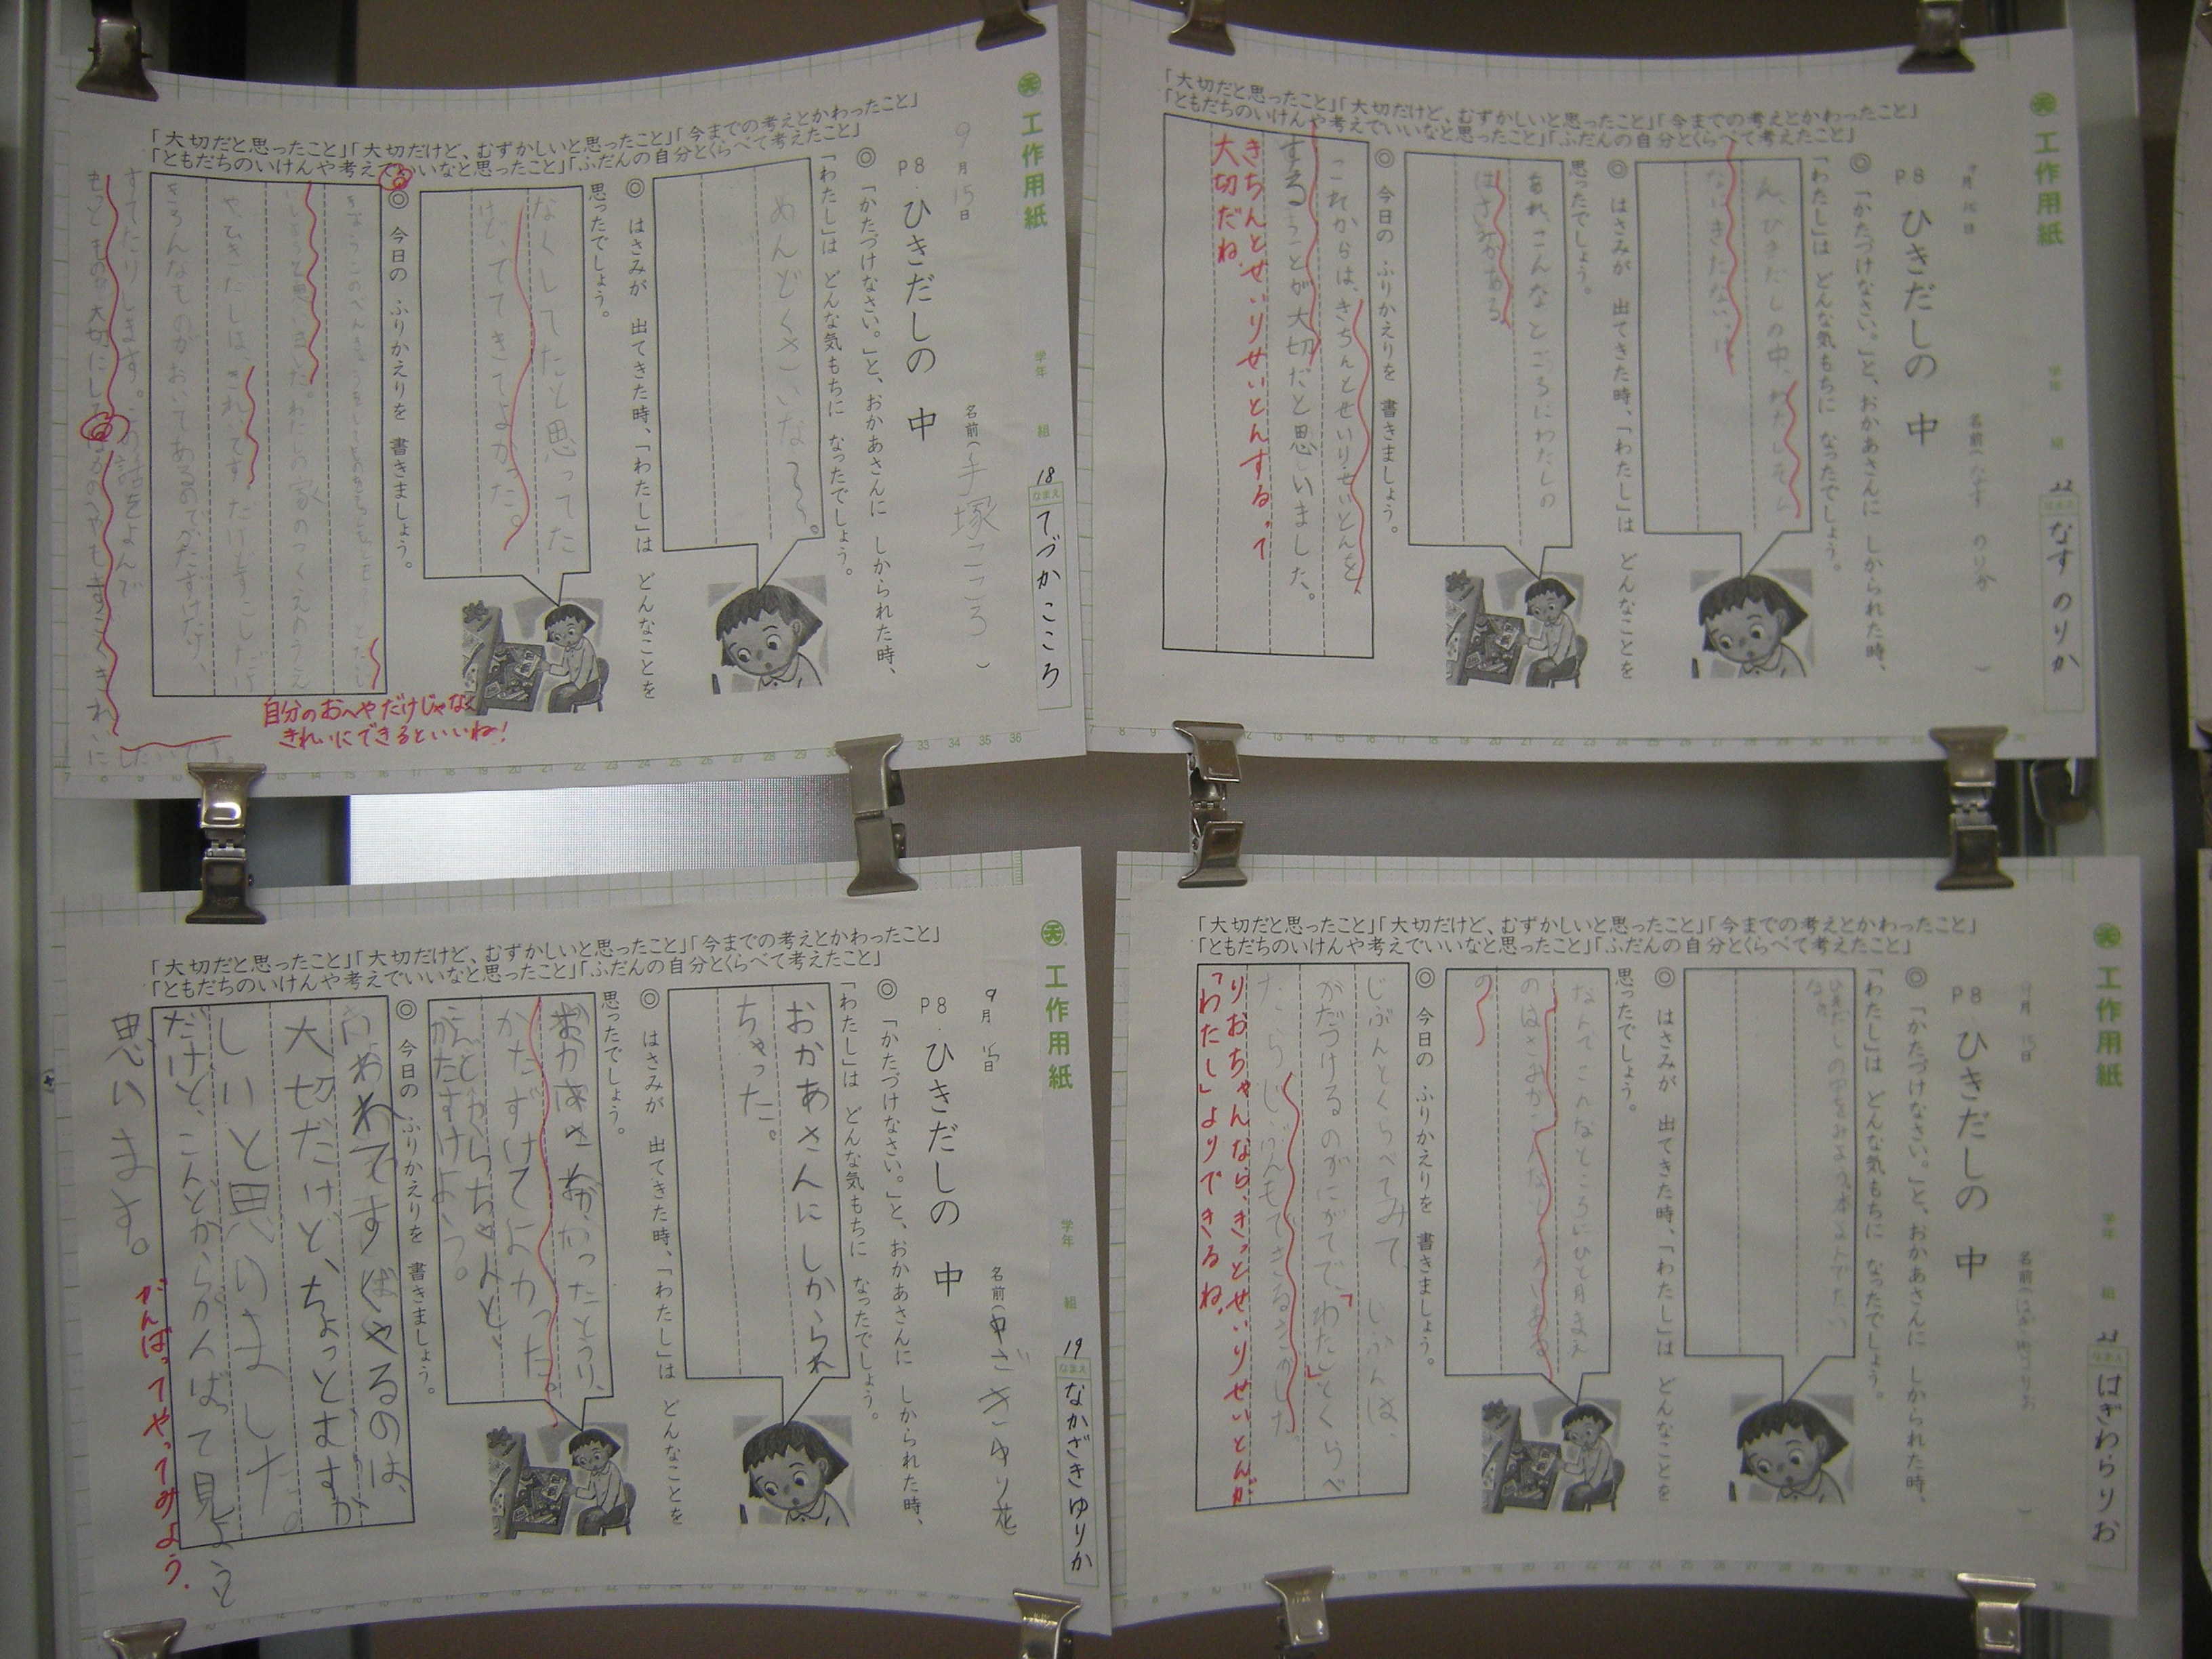 工作用紙
学年
組
18
なまえ
てづかこころ
9月15日
名前(手塚こころ)
P8 ひきだしの 中
◎「かたづけなさい。」と、おかあさんに しかられた時、
「わたし」は どんな気もちに なったでしょう。
めんどくさいな〜。
◎ はさみが 出てきた時、「わたし」は どんなことを
思ったでしょう。
なくしてたと思ってた
けど、でてきてよかった。
◎ 今日の ふりかえりを 書きましょう。
わたしの家のつくえのうえ
やひきだしは、きれいです。だけどすこしだけ
いろんなものがおいてあるのでかたずけたり、
すてたりします。
「大切だと思ったこと」「大切だけど、むずかしいと思ったこと」「今までの考えとかわったこと」
「ともだちのいけんや考えでいいなと思ったこと」「ふだんの自分とくらべて考えたこと」
自分のおへやだけじゃなく
きれいにできるといいね!
工作用紙
学年
組
なまえ
なす のりか
名前(なす のりか)
P8 ひきだしの 中
◎「かたづけなさい。」と、おかあさんに しかられた時、
「わたし」は どんな気もちに なったでしょう。
ん、ひきだしの中、わたしそん
なにきたない、け
◎ はさみが 出てきた時、「わたし」は どんなことを
思ったでしょう。
あれ、こんなところにわたしの
はさみがある
◎ 今日の ふりかえりを 書きましょう。
これからは、きちんとせいりせいとんを
することが大切だと思いました。
きちんとせいりせいとんするって
大切だね。
「大切だと思ったこと」「大切だけど、むずかしいと思ったこと」「今までの考えとかわったこと」
「ともだちのいけんや考えでいいなと思ったこと」「ふだんの自分とくらべて考えたこと」
工作用紙
学年
組
19
なまえ
なかざきゆりか
9月15日
名前(中ざきゆり花
P8 ひきだしの 中
◎「かたづけなさい。」と、おかあさんに しかられた時、
「わたし」は どんな気もちに なったでしょう。
おかあさんにしかられ
ちゃった。
◎ はさみが 出てきた時、「わたし」は どんなことを
思ったでしょう。
かたずけてよかった。
こんどからちゃんと
かたすけよう。
◎ 今日の ふりかえりを 書きましょう。
いわれてすばやるのは、
大切だけど、ちょっとむずか
しいと思いました。
だけど、こんどからがんばって見ようと
思います。
がんばってやってみよう。
「大切だと思ったこと」「大切だけど、むずかしいと思ったこと」「今までの考えとかわったこと」
「ともだちのいけんや考えでいいなと思ったこと」「ふだんの自分とくらべて考えたこと」
工作用紙
学年
組
なまえ
はぎわらりお
P8 ひきだしの 中
◎「かたづけなさい。」と、おかあさんに しかられた時、
「わたし」は どんな気もちに なったでしょう。
◎ はさみが 出てきた時、「わたし」は どんなことを
思ったでしょう。
なんでこんなところにひと月まえ
のはさみがこんなところにあるの
◎ 今日の ふりかえりを 書きましょう。
じぶんとくらべてみて、じぶんは、
かたづけるのがにがてで、「わたし」とくらべ
たらじぶんもできるきがした。
りおちゃんなら、きっとせいりせいとんが
「わたし」よりできるね。
「大切だと思ったこと」「大切だけど、むずかしいと思ったこと」「今までの考えとかわったこと」
「ともだちのいけんや考えでいいなと思ったこと」「ふだんの自分とくらべて考えたこと」